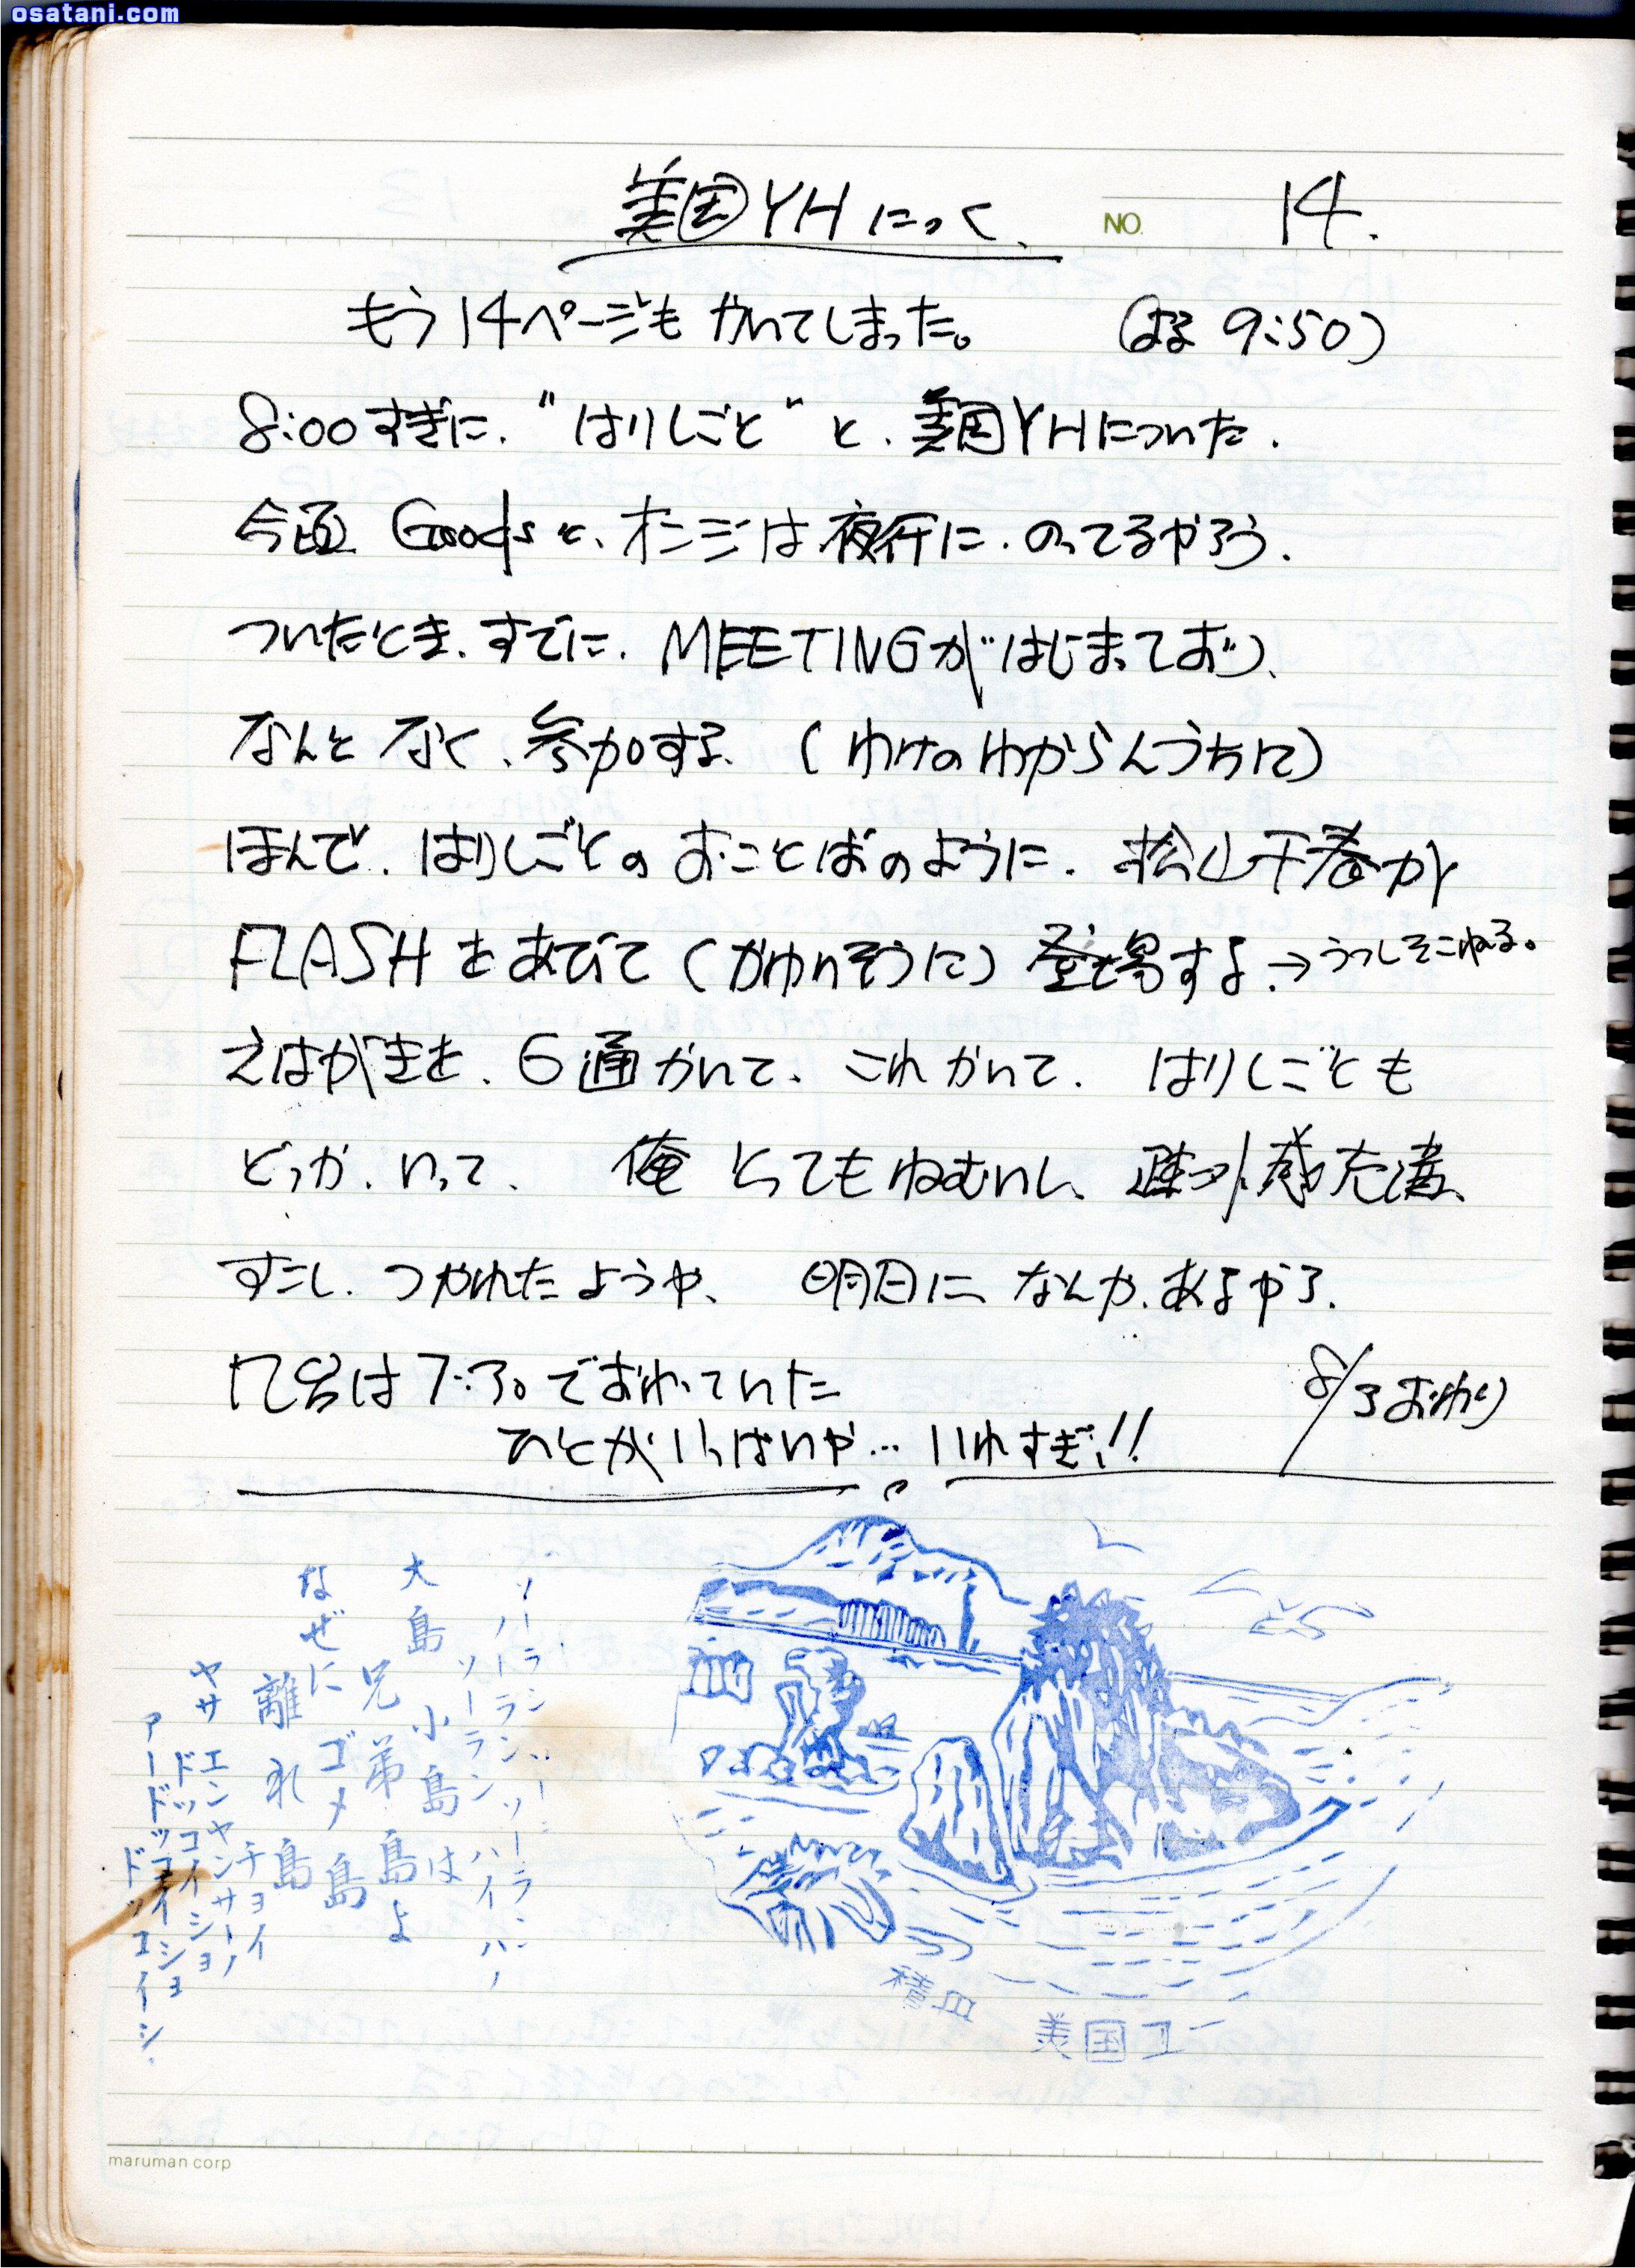 osatani.com
美国YHにつく、
NO. 14.
もう14ページもかいてしまった。 (よる 9:50)
8:00すぎに. "はりしごと" と. 美国YHについた.
今頃 Goodsと、オニジは夜行に. のってるやろう.
ついたとき、すでに. MEETINGがはじまっており、
なんとなく、参加する. (わけのわからんうちに)
ほんで. はりしごとのおことばのように. 松山千春が
FLASHをあびて (かゆいそうに) 登場する. → うつしそこねる。
えはがきを. 6通かいて、これかいて. はりしごとも
どっか. いって、 俺 とってもねむいし、疎外感充満、
すこし. つかれたようや、 明日に なんか. あるやろ.
は7:30でおわっていた
8/3おわり
ひとがいっぱいや… いれすぎ!!
ソーランソーラン
ソーラン ハイハイ
大島小島は
兄弟島よ
なぜにゴメ島
離れ島
チョイ
ヤサエンヤンサーノ
ドッコイショ
アードッコイショ
ドッコイショ
積丹
美国ユー
maruman corp